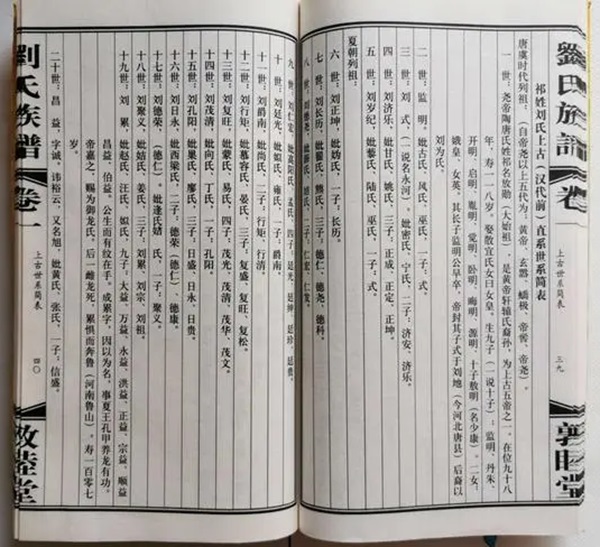 劉氏族譜
卷一
上古世系简表
三九
敦睦堂
祁姓刘氏上古（汉代前）直系世系简表
唐虞时代列祖：（自帝尧以上五代为：黄帝、玄嚣、蟜极、帝喾、帝尧）。
一世：尧帝陶唐氏姓祁名放勋（大始祖），是黄帝轩辕氏裔孙，为上古五帝之一。在位九十八
年，寿一一八岁。娶散宜氏女曰女皇。生九子（一说十子）：监明、丹朱、
开明、启明、胤明、觉明、卧明、晦明、源明、十子敖明（名少康）。二女：
娥皇、女英。其长子监明公早卒，帝封其子式于刘地（今河北唐县）后裔以
刘为氏。
二世：监明，妣古氏、风氏、巫氏，一子：式。
三世：刘式，（一说名永河）。妣密氏、宁氏，二子：济安、济乐。
四世：刘济乐，妣甘氏、姚氏，三子：正成、正定、正坤。
五世：刘岁纪，妣黎氏、陆氏、巫氏，一子：式。
夏朝列祖：
六世：刘正坤，妣妫氏，一子：长历。
七世：刘长历，妣 氏、熊氏，三子：德仁、德尧、德科。
八世：刘德尧，妣 氏、姞氏，一子：仁宏、仁
九世：刘仁宏，妣高阳氏、孟氏，四子：延光、延绅、延珍、延惠。
十世：刘延光，妣姐氏、雍氏，一子：爵南。
十一世：刘爵南，妣尚氏，二子：行矩、行清。
十二世：刘行矩，妣慕容氏、晏氏，三子：复盛、复旺、复松。
十三世：刘复旺，妣蒙氏、易氏，四子：茂光、茂清、茂华、茂文。
十四世：刘茂清，妣向氏、丁氏，一子：孔阳。
十五世：刘孔阳，妣巢氏、廖氏，三子：日盛、日永、日贵。
十六世：刘日永，妣西梁氏，二子：德荣（德仁）、德康
十七世：刘德荣，（德仁）。妣逢氏嫱氏，一子：聚义。
十八世：刘聚义，妣姞氏、姜氏，三子：刘累、刘宗、刘祖。
十九世：刘累，妣赵氏、汪氏、姒氏，九子：大益、万益、永益、洪益、正益、宗益、顺益、
昌益、伯益。公生而有纹在手。成累字，因以为名，事夏王孔甲养龙有功。
帝嘉之，赐为御龙氏。后一雌龙死，累惧而奔鲁（河南鲁山）。寿一百零七
岁。
二十世：昌益，字诚，讳裕云，又名旭，妣黄氏、张氏，一子：信盛。
劉氏族譜
卷一
上古世系简表
四〇
敦睦堂